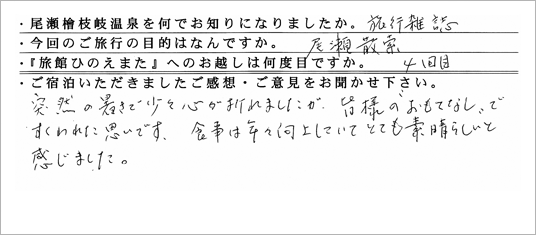 ・尾瀬檜枝岐温泉を何でお知りになりましたか。旅行雑誌
・今回のご旅行の目的はなんですか。尾瀬散索
・『旅館ひのえまた』へのお越しは何度目ですか。4回目
・ご宿泊いただきましたご感想・ご意見をお聞かせ下さい。
突然の暑さで少々心が折れましたが、皆様の"おもてなし"で
すくわれた思いです。食事は年々向上していてとても素晴らしいと
感じました。